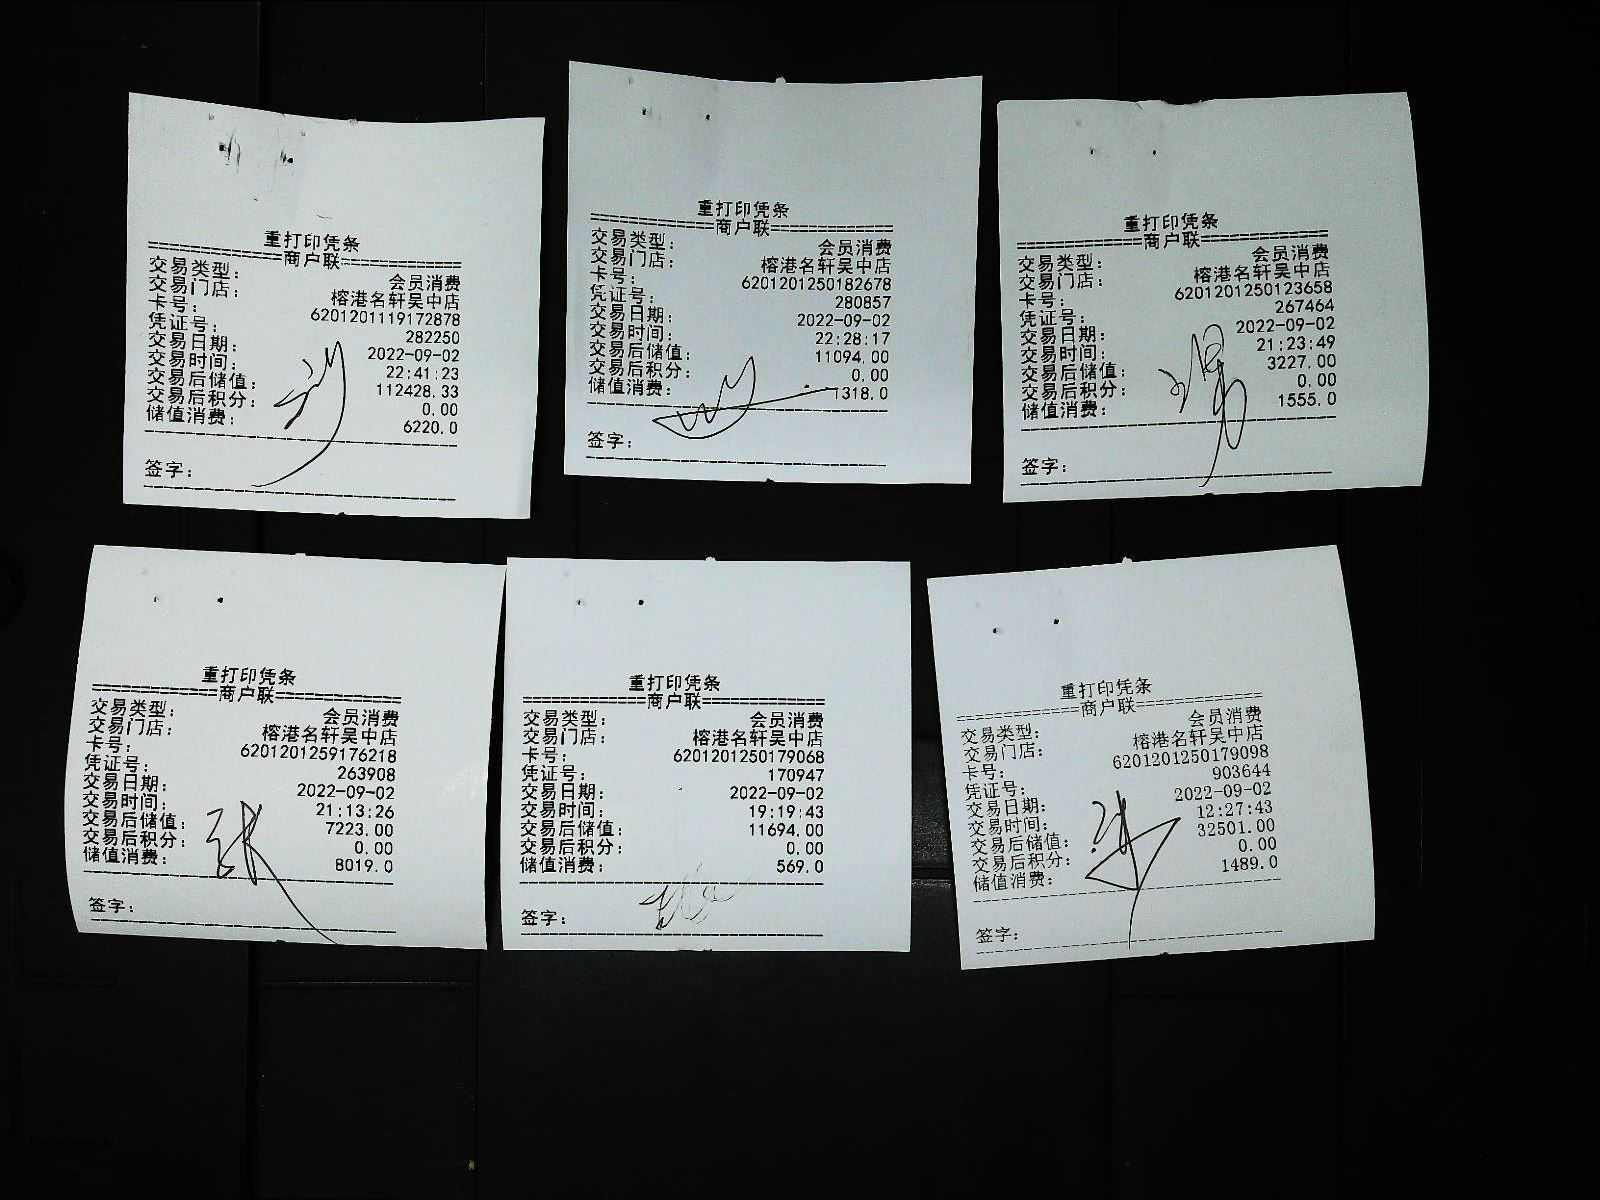 重打印凭条
=============商户联=============
交易类型: 会员消费
交易门店: 榕港名轩吴中店
卡号: 6201201119172878
凭证号: 282250
交易日期: 2022-09-02
交易时间: 22:41:23
交易后储值: 112428.33
交易后积分: 0.00
储值消费: 6220.0
签字:
重打印凭条
=============商户联=============
交易类型: 会员消费
交易门店: 榕港名轩吴中店
卡号: 6201201250182678
凭证号: 280857
交易日期: 2022-09-02
交易时间: 22:28:17
交易后储值: 11094.00
交易后积分: 0.00
储值消费: 1318.0
签字:
重打印凭条
=============商户联=============
交易类型: 会员消费
交易门店: 榕港名轩吴中店
卡号: 6201201250123658
凭证号: 267464
交易日期: 2022-09-02
交易时间: 21:23:49
交易后储值: 3227.00
交易后积分: 0.00
储值消费: 1555.0
签字:
重打印凭条
=============商户联=============
交易类型: 会员消费
交易门店: 榕港名轩吴中店
卡号: 6201201259176218
凭证号: 263908
交易日期: 2022-09-02
交易时间: 21:13:26
交易后储值: 7223.00
交易后积分: 0.00
储值消费: 8019.0
签字:
重打印凭条
=============商户联=============
交易类型: 会员消费
交易门店: 榕港名轩吴中店
卡号: 6201201250179068
凭证号: 170947
交易日期: 2022-09-02
交易时间: 19:19:43
交易后储值: 11694.00
交易后积分: 0.00
储值消费: 569.0
签字:
重打印凭条
=============商户联=============
交易类型: 会员消费
交易门店: 榕港名轩吴中店
卡号: 6201201250179098
凭证号: 903644
交易日期: 2022-09-02
交易时间: 12:27:43
交易后储值: 32501.00
交易后积分: 0.00
储值消费: 1489.0
签字: